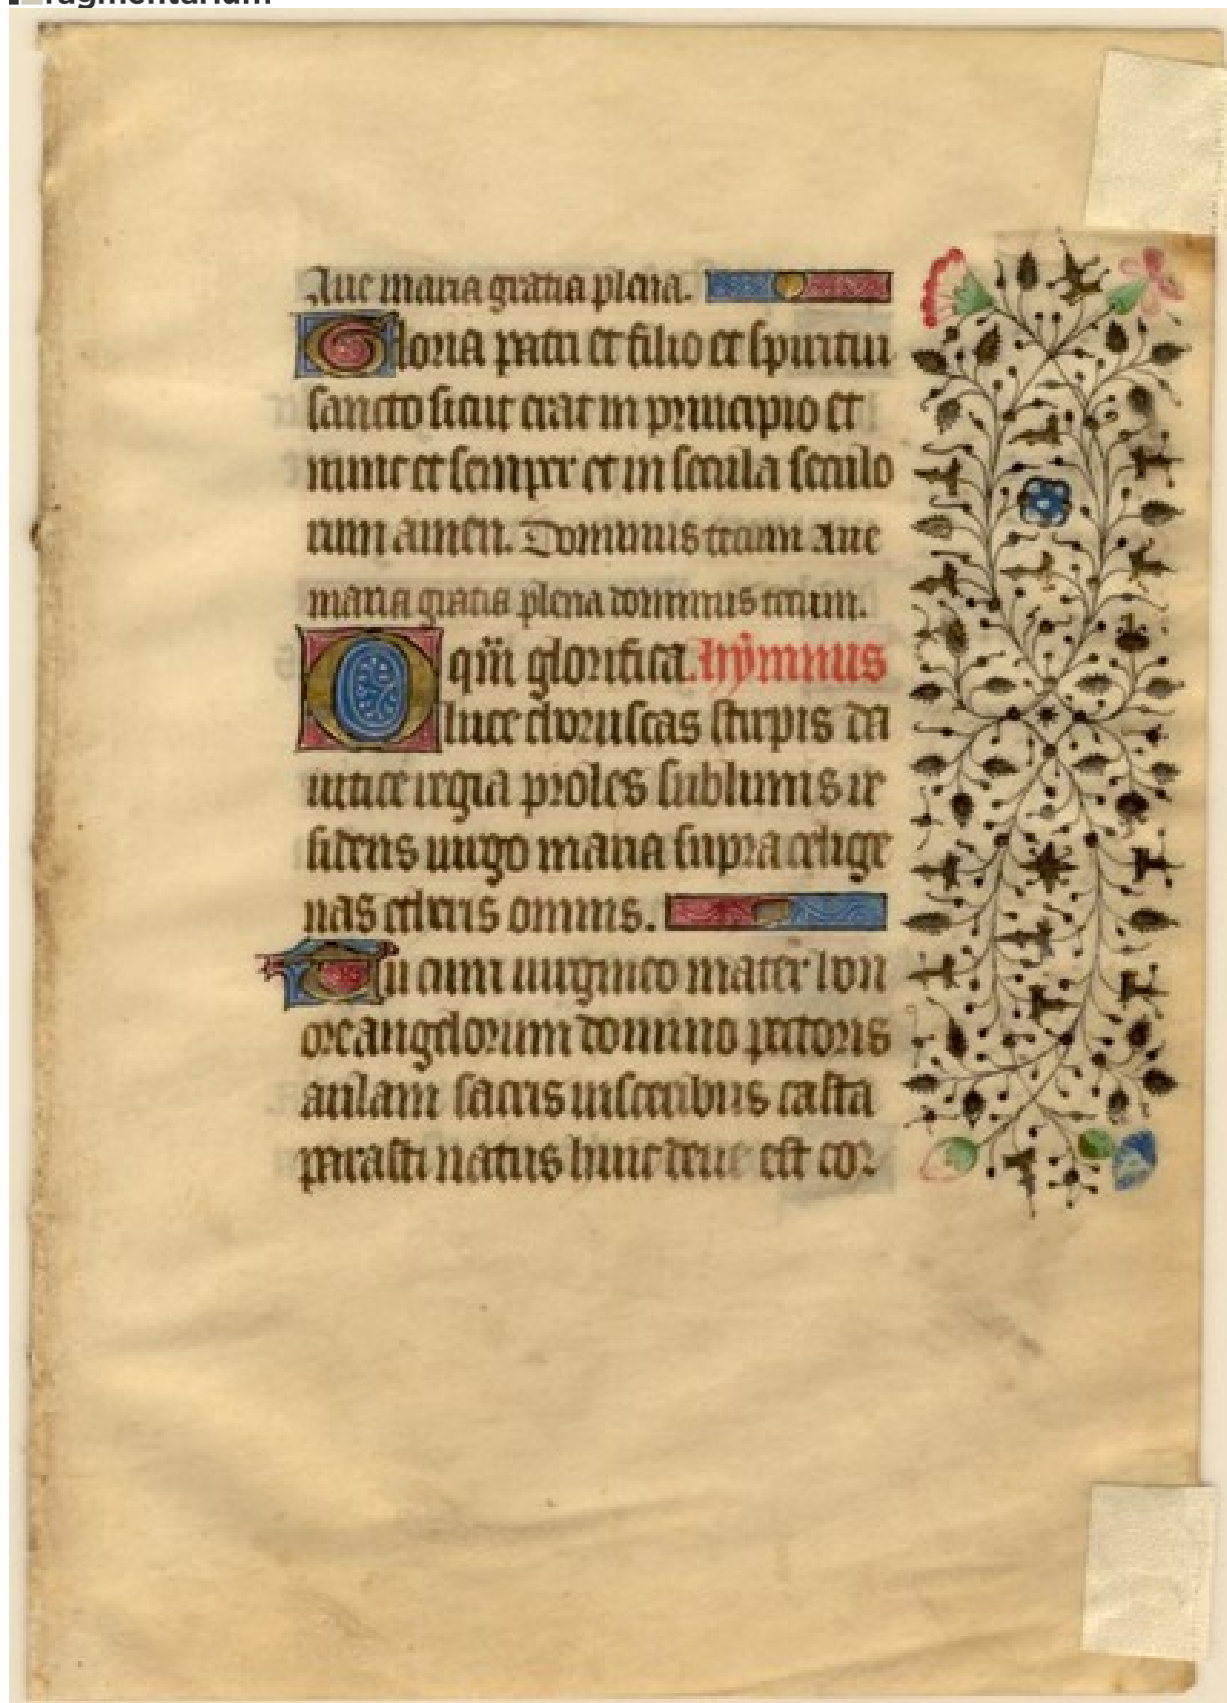 ragmentarium
Aue maria gratia plena.
Gloria patri et filio et spiritui
sancto sicut erat in principio et
nunc et semper et in secula seculo
rum amen. Dominus tecum Aue
maria gratia plena dominus tecum.
O qm glorifica. hymnus
luce choruscas stirpis da
uitice regia proles sublimis re
sidens uirgo maria supra celige
nas etheris omnis.
Tu cum uirgineo mater hon
ore angelorum domino pectoris
aulam sacris uisceribus casta
parasti natus hinc deus est cor